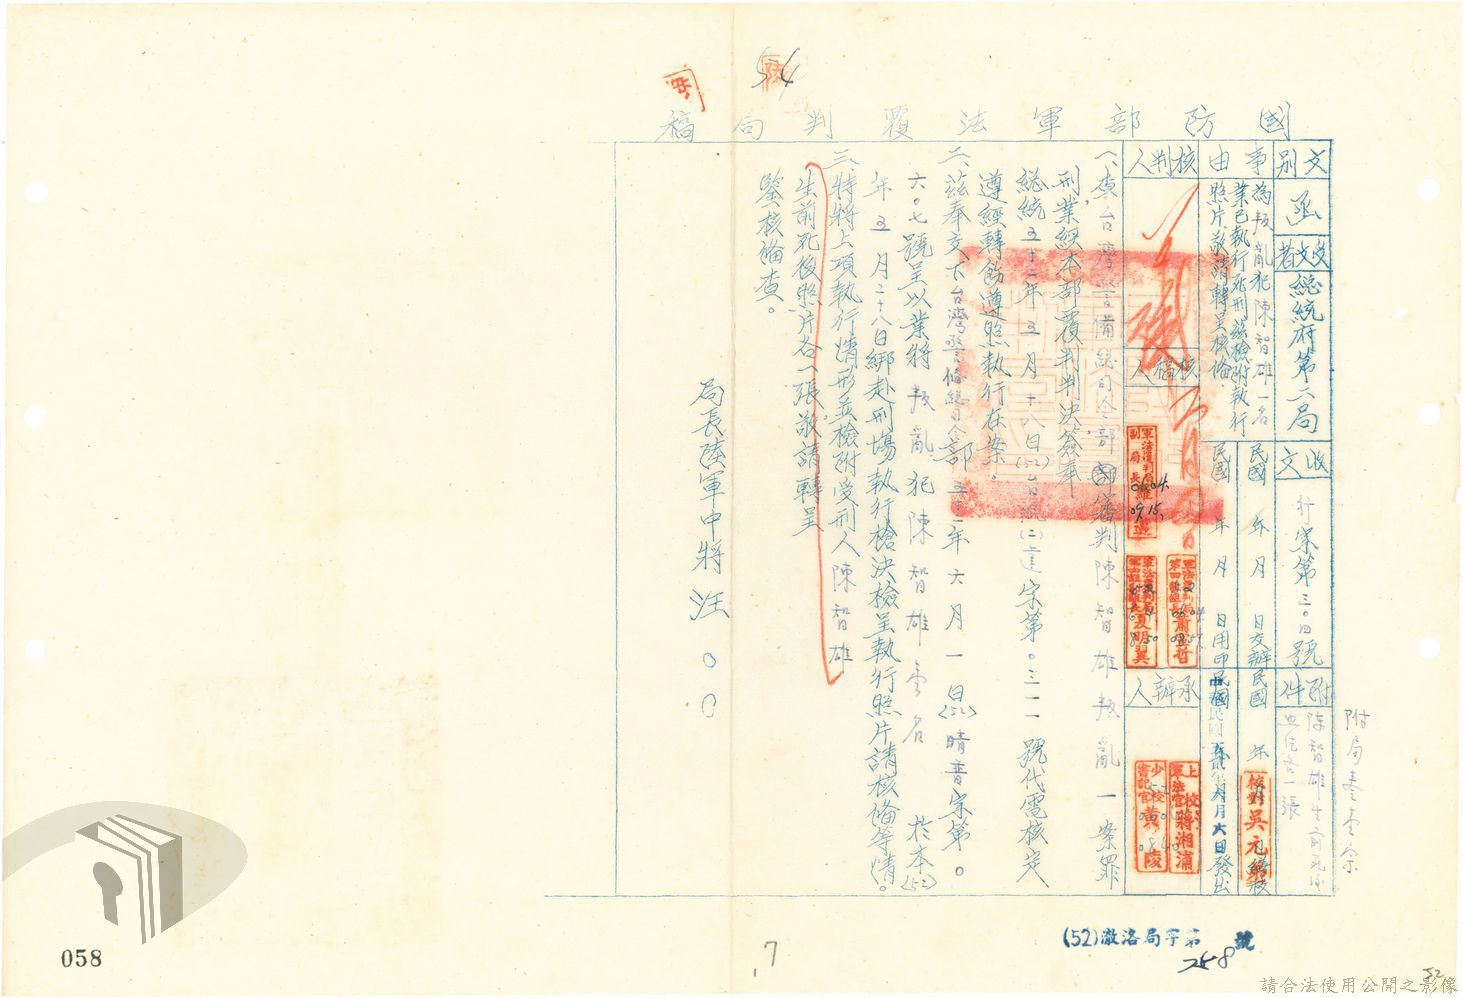 國防部軍法覆判局稿
文別
函
受文者
總統府第二局
收文
行宋第三〇四號
附件
陳智雄生前死後
照片各一張
附局卷壹宗
事由
為叛亂犯陳智雄一名
業已執行死刑茲檢附執行
照片敬請轉呈核備
民國 年 月 日交辦
民國 年
核對吳元
民國 年 月 日用印
中華民國五貳年六月六日發出
核判人
核稿人
軍法覆判局副局長
承辦人
上校軍法官蔣湘浦
少校書記官黃陵
一、查台灣警備總司令部審判陳智雄叛亂一案罪
刑業經本部覆判判決簽奉
總統五十二年五月十八日(52)台統(二)達字第〇三一一號代電核定
遵經轉飭遵照執行在案。
二、茲奉交下台灣警備總司令部五十二年六月一日(52)晴普字第〇
六〇七號呈以業將叛亂犯陳智雄壹名於本(52)
年五月二十八日綁赴刑場執行槍決檢呈執行照片請核備等情。
三、特將上項執行情形並檢附受刑人陳智雄
生前死後照片各一張敬請轉呈
鑒核備查。
局長陸軍中將汪〇〇
(52)澈洛局字第
號
7
058
請合法使用公開之影像